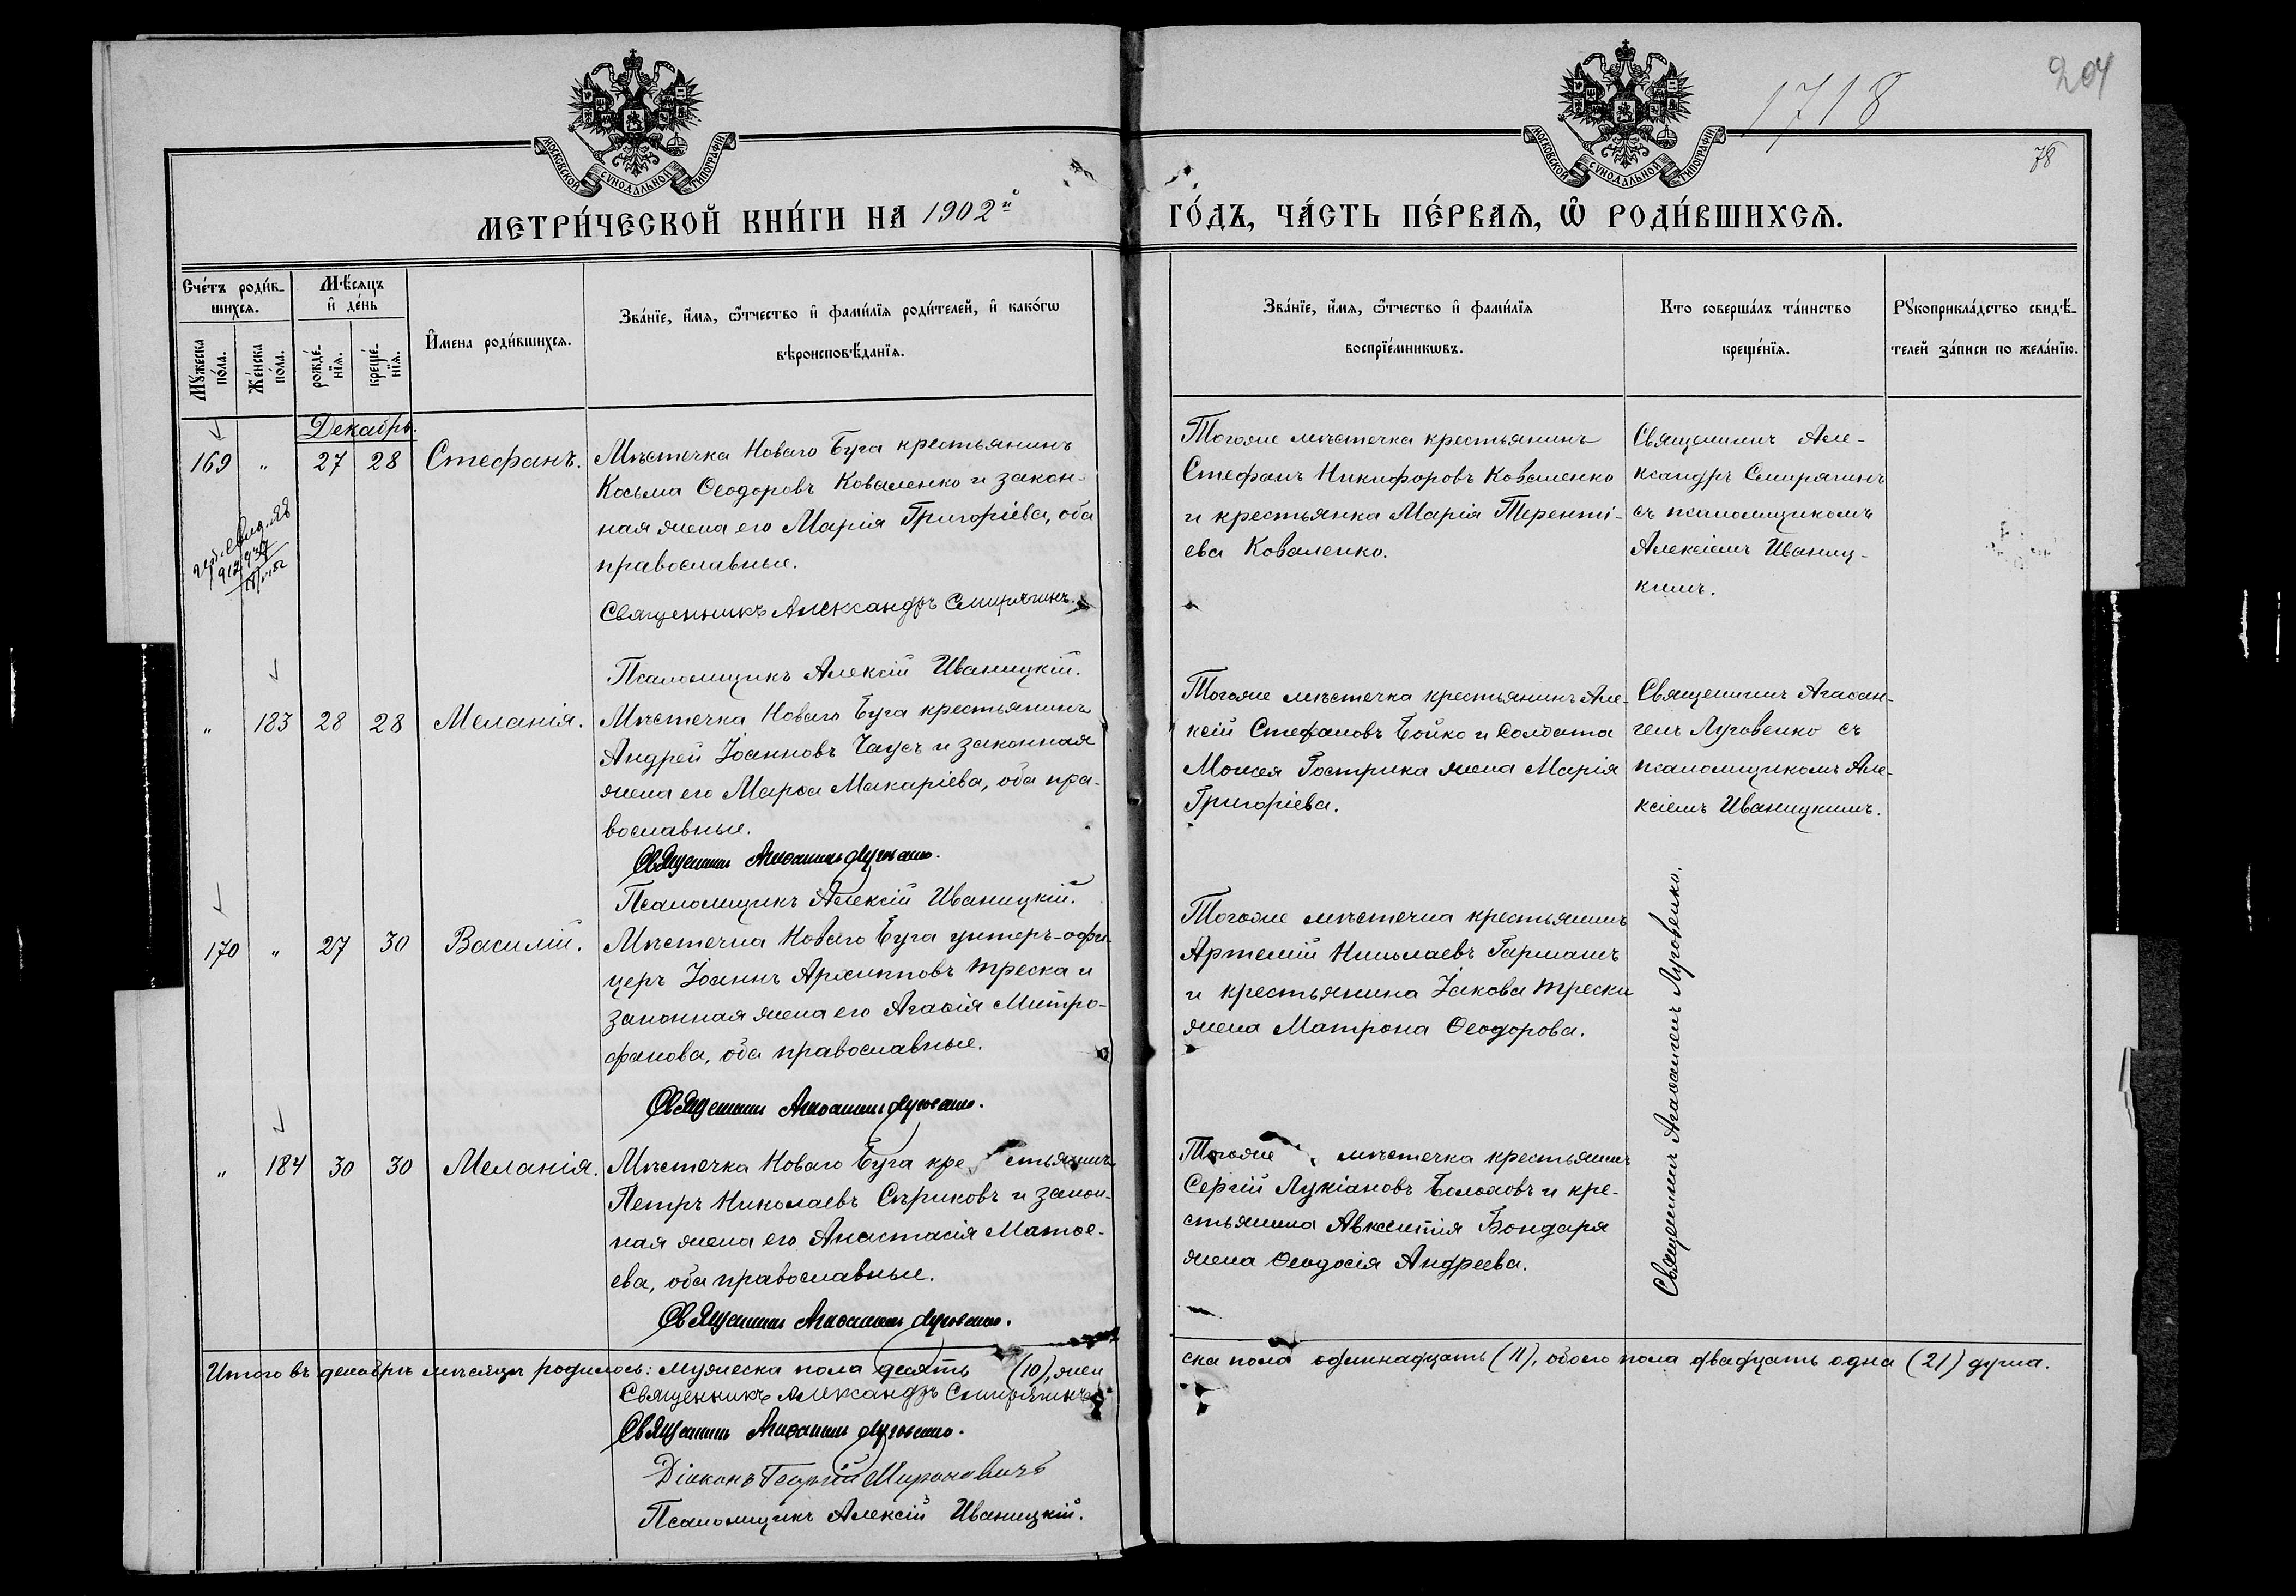 1718
204
78
МОСКОВСКОЙ СУНОДАЛЬНОЙ ТИПОГРАФІИ
МОСКОВСКОЙ СУНОДАЛЬНОЙ ТИПОГРАФІИ
МЕТРИ́ЧЕСКОЙ КНИ́ГИ НА 1902й ГО́ДЪ, ЧА́СТЬ ПЕ́РВАѦ, Ѡ҆ РОДИ́ВШИХСѦ.
Сче́тъ роди́в-
шихсѧ.
Мꙋ́жеска по́ла.
Же́нска по́ла.
Мѣ́сѧцъ
и҆ де́нь
рожде́-
нїѧ.
креще́-
нїѧ.
И҆́мена роди́вшихсѧ.
Зва́нїе, и҆́мѧ, ѻ҆́тчество и҆ фами́лїѧ роди́телей, и҆ како́гѡ
вѣроисповѣ́данїѧ.
Зва́нїе, и҆́мѧ, ѻ҆́тчество и҆ фами́лїѧ
воспрїе́мникѡвъ.
Кто соверша́лъ та́инство
креще́нїѧ.
Рꙋкоприкла́дство свидѣ́-
телей за́писи по жела́нїю.
Декабрь.
169 " 27 28 Стефанъ.
Мѣстечка Новаго Буга крестьянинъ
Косьма Ѳеодоровъ Коваленко и закон-
ная жена его Марія Григоріева, оба
православные.
Священникъ Александръ Смирягинъ.
Псаломщикъ Алексій Иваницкій.
Тогоже мѣстечка крестьянинъ
Стефанъ Никифоровъ Коваленко
и крестьянка Марія Теренті-
ева Коваленко.
Священникъ Але-
ксандръ Смирягинъ
съ псаломщикомъ
Алексіемъ Иваниц-
кимъ.
" 183 28 28 Меланія.
Мѣстечка Новаго Буга крестьянинъ
Андрей Іоанновъ Чаусъ и законная
жена его Марѳа Макаріева, оба пра-
вославные.
Священникъ Агаѳангелъ Луговенко.
Псаломщикъ Алексій Иваницкій.
Тогоже мѣстечка крестьянинъ Але-
ксій Стефановъ Бойко и солдата
Моисея Гострика жена Марія
Григоріева.
Священникъ Агаѳан-
гелъ Луговенко съ
псаломщикомъ Але-
ксіемъ Иваницкимъ.
170 " 27 30 Василій.
Мѣстечка Новаго Буга унтеръ-офи-
церъ Іоаннъ Архипповъ Треска и
законная жена его Агаѳія Митро-
фанова, оба православные.
Священникъ Агаѳангелъ Луговенко.
Тогоже мѣстечка крестьянинъ
Артемій Николаевъ Гарманъ
и крестьянина Іакова Трески
жена Матрона Ѳеодорова.
Священникъ Агаѳангелъ Луговенко.
" 184 30 30 Меланія.
Мѣстечка Новаго Буга крестьянинъ
Петръ Николаевъ Сѣриковъ и закон-
ная жена его Анастасія Матѳе-
ева, оба православные.
Священникъ Агаѳангелъ Луговенко.
Тогоже мѣстечка крестьянинъ
Сергій Лукіановъ Болоховъ и кре-
стьянина Авксентія Бондаря
жена Ѳеодосія Андреева.
Итого въ декабрѣ мѣсяцѣ родилось: мужеска пола десять (10), жен
ска пола одиннадцать (11), обоего пола двадцать одна (21) душа.
Священникъ Александръ Смирягинъ
Священникъ Агаѳангелъ Луговенко.
Діаконъ Георгій Мироновичъ
Псаломщикъ Алексій Иваницкій.